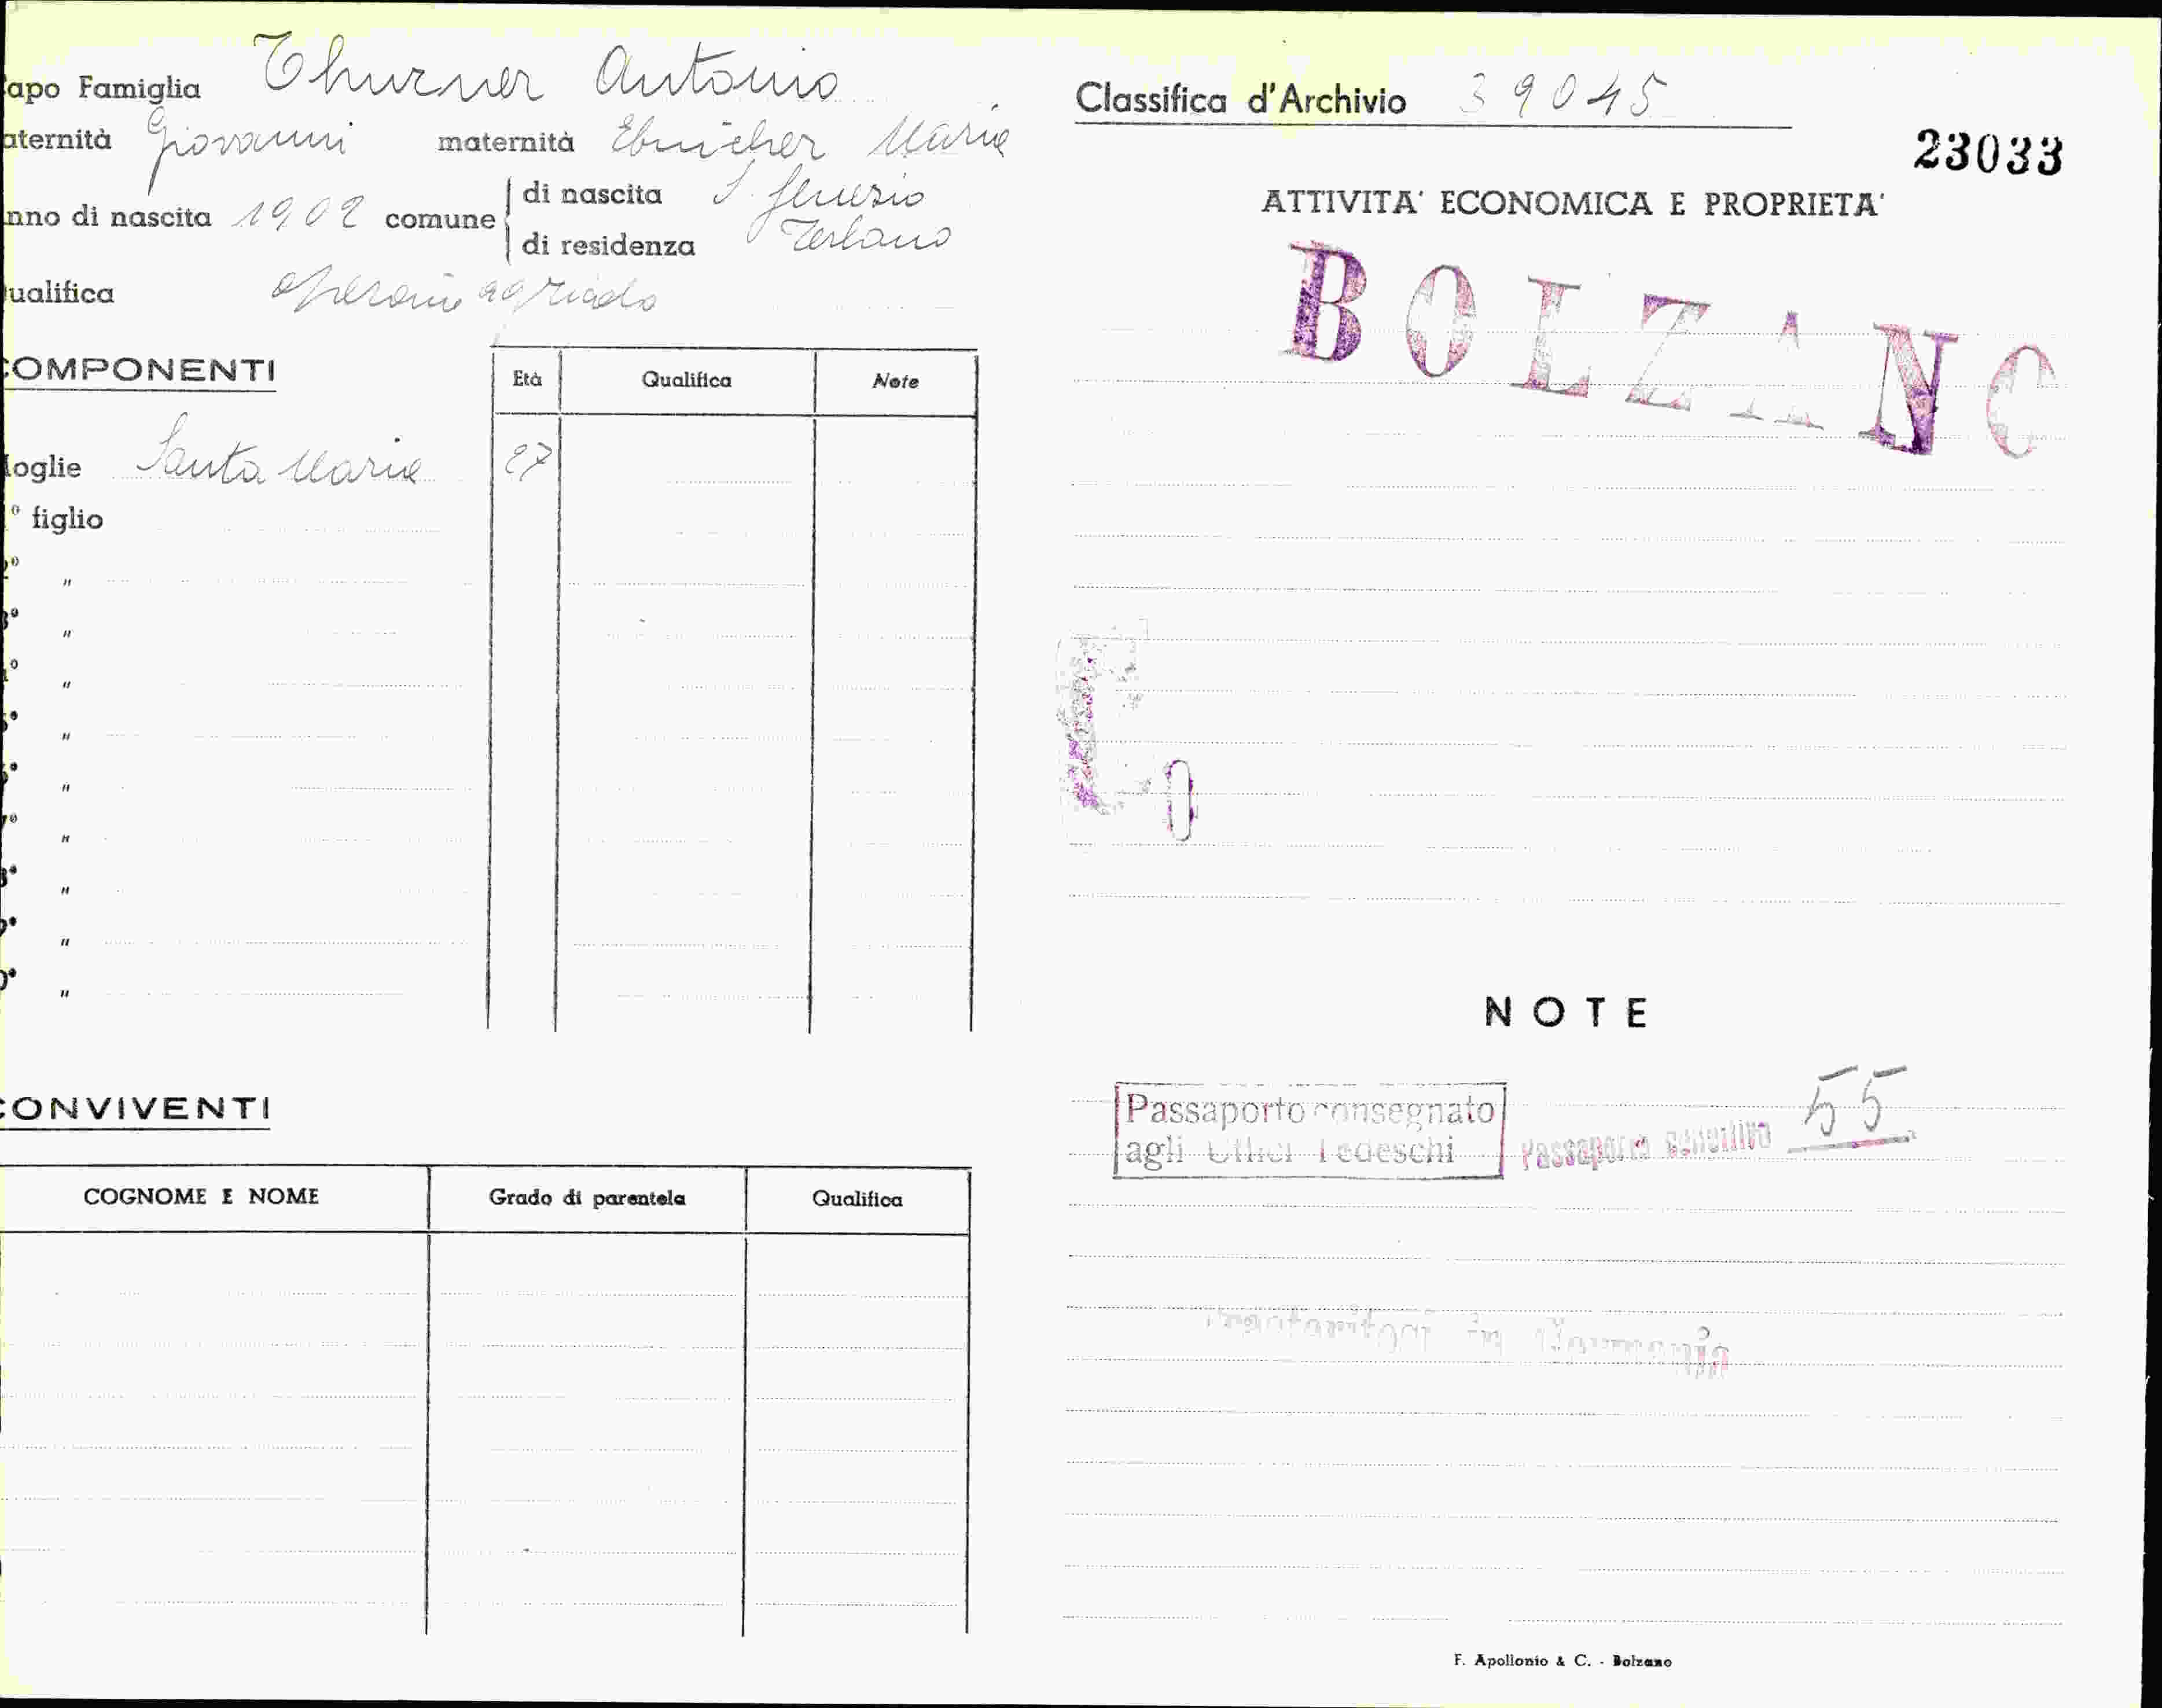 apo Famiglia Thurner Antonio
aternità Giovanni maternità Ebnicher Maria
nno di nascita 1902 comune di nascita S. Genesio
di residenza Terlano
ualifica operaio agricolo
COMPONENTI
Età Qualifica Note
oglie Santa Maria 27
° figlio
2° "
3° "
° "
5° "
6° "
7° "
8° "
9° "
0° "
CONVIVENTI
COGNOME E NOME Grado di parentela Qualifica
Classifica d'Archivio 39045
23033
ATTIVITA' ECONOMICA E PROPRIETA'
BOLZANO
NOTE
Passaporto consegnato
agli Uffici Tedeschi
Passaporto 55
in Germania
F. Apollonio & C. - Bolzano